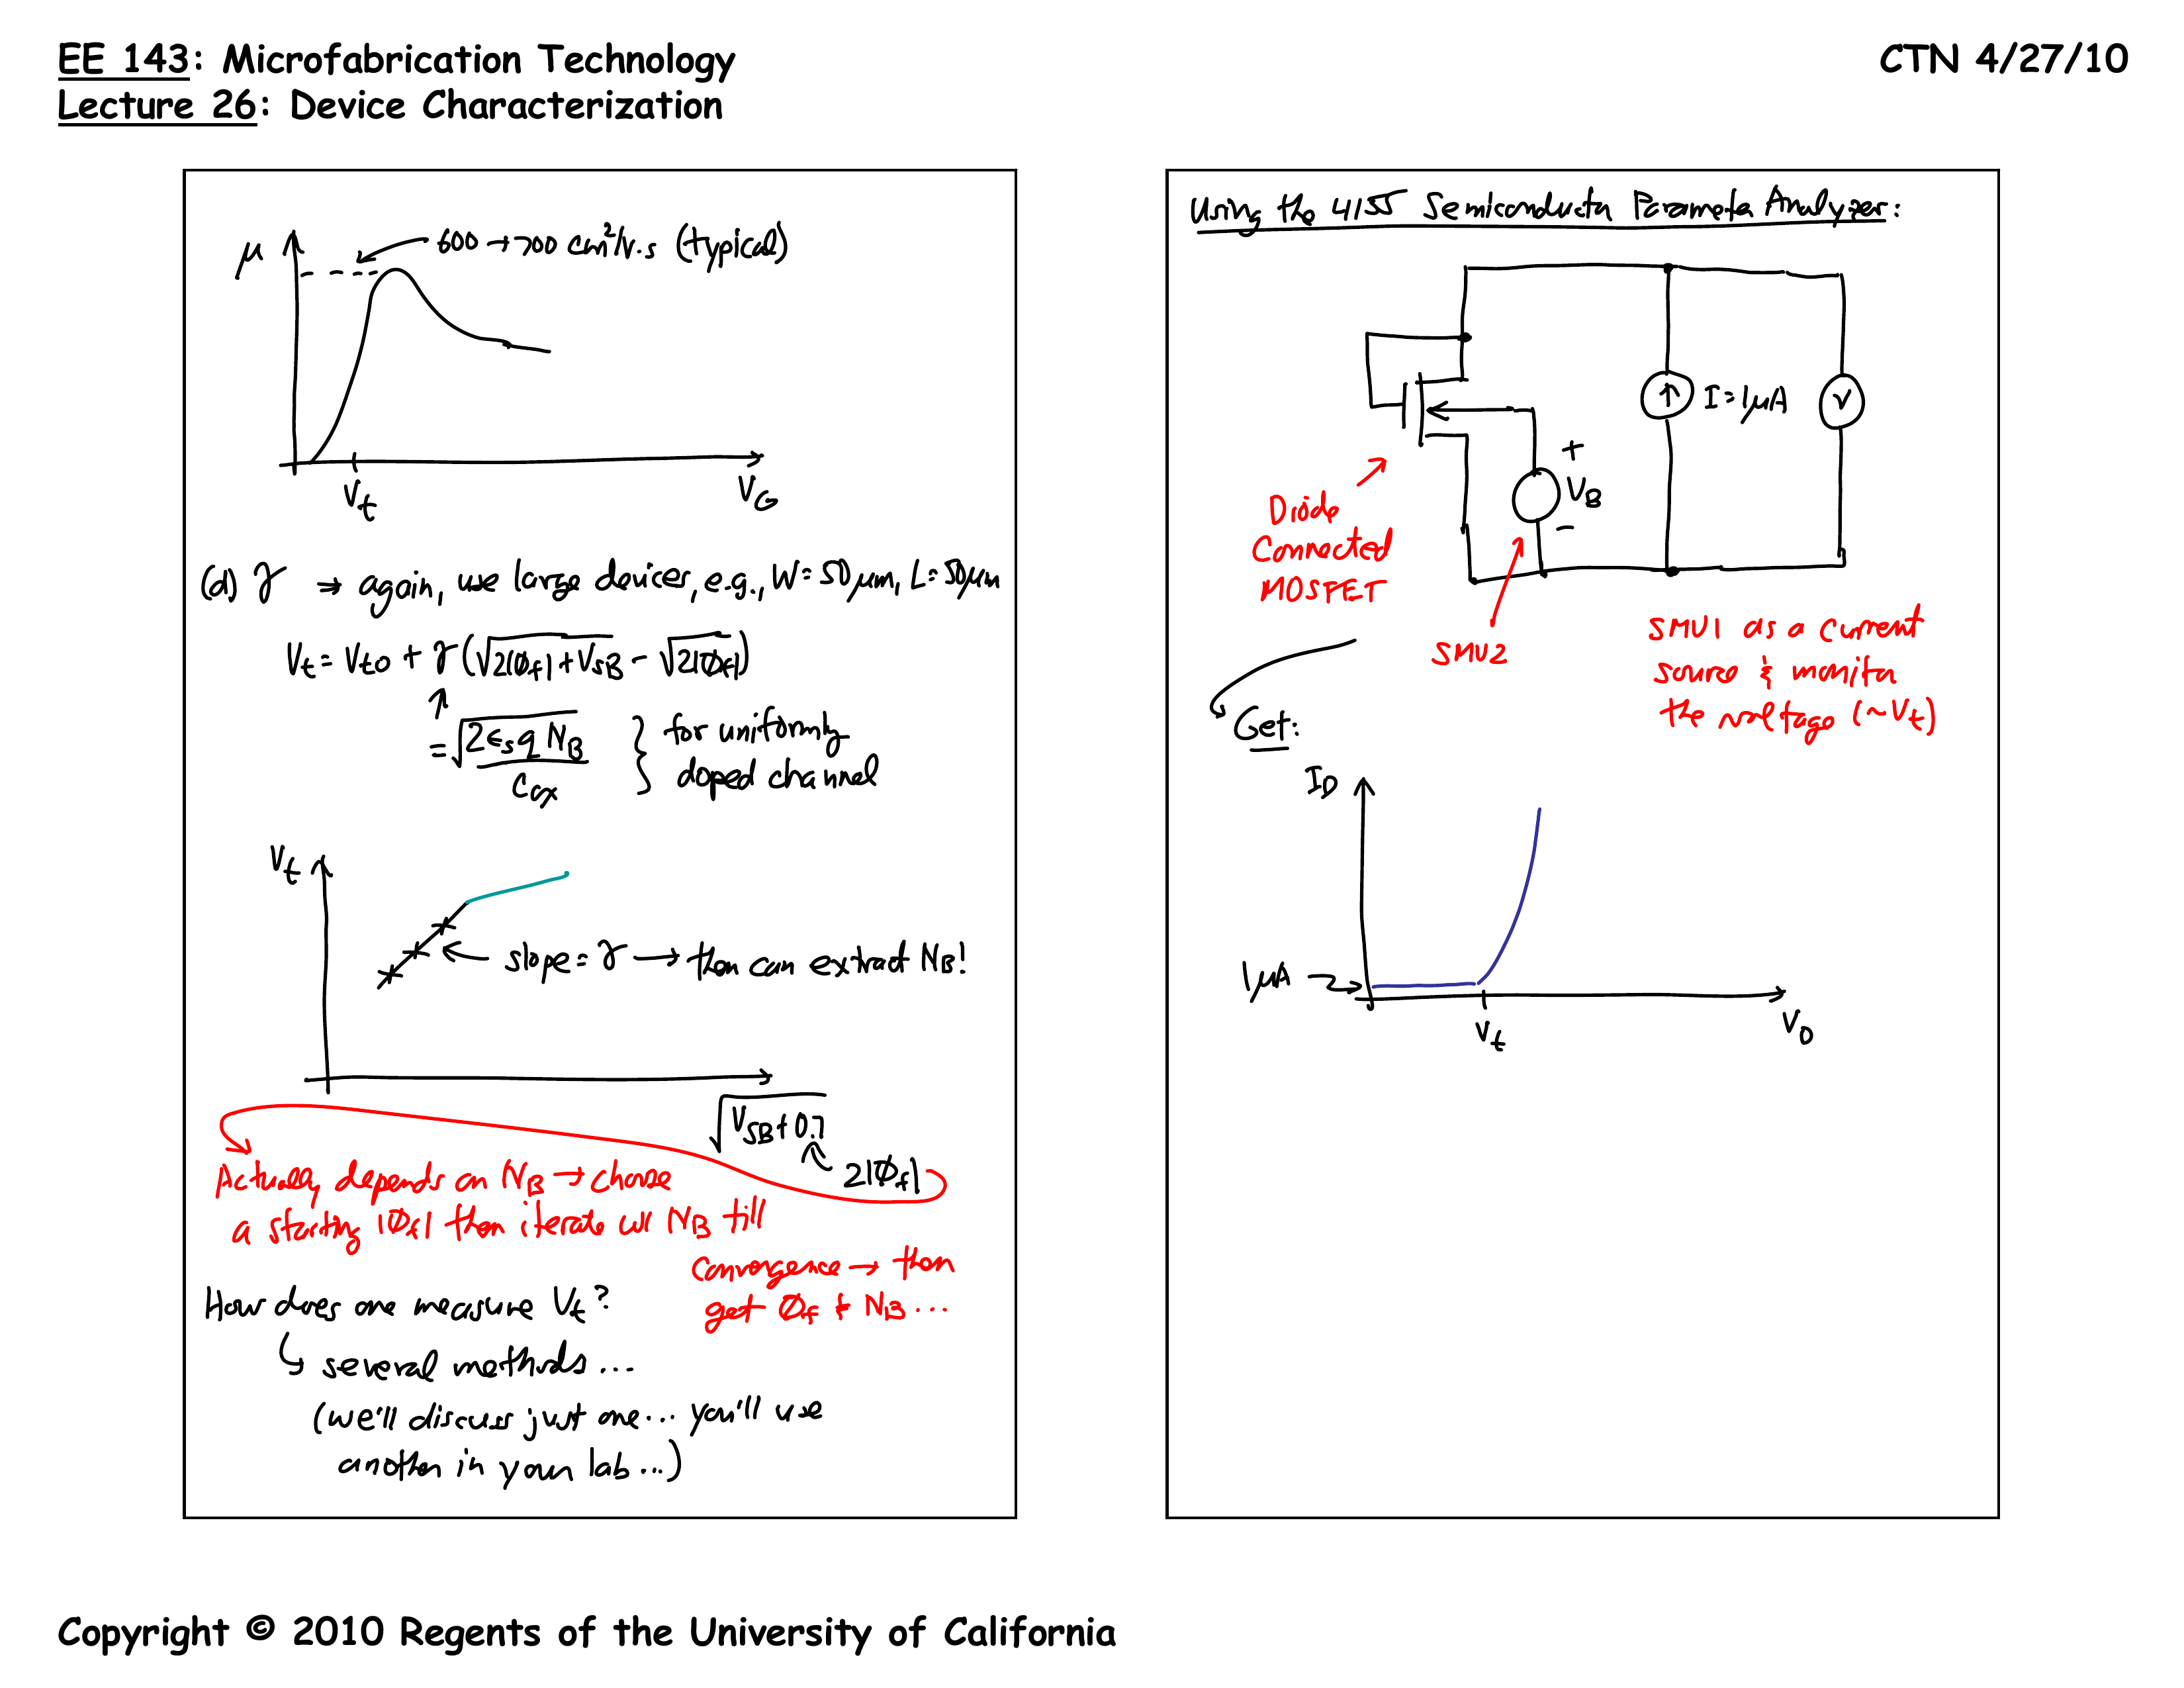 EE 143: Microfabrication Technology
Lecture 26: Device Characterization
CTN 4/27/10
μ
600→700 cm²/V.s (typical)
Vt
VG
(d) γ → again, use large devices, e.g., W=50μm, L=50μm
Vt = Vt0 + γ(√2|φf|+VSB − √2|φf|)
= √2εsqNB / Cox } for uniformly
doped channel
Vt
slope = γ → then can extract NB!
√VSB+0.7
2|φf|
Actually depends on NB → choose
a starting |φf| then iterate w/ NB till
convergence → then
get φf & NB...
How does one measure Vt?
↳ several methods...
(we'll discuss just one... you'll use
another in your lab...)
Using the 4155 Semiconductor Parameter Analyzer:
I=1μA
V
+
VB
−
Diode
Connected
MOSFET
SMU2
SMU1 as a current
source & monitor
the voltage (~Vt)
Get:
ID
1μA →
Vt
VD
Copyright © 2010 Regents of the University of California